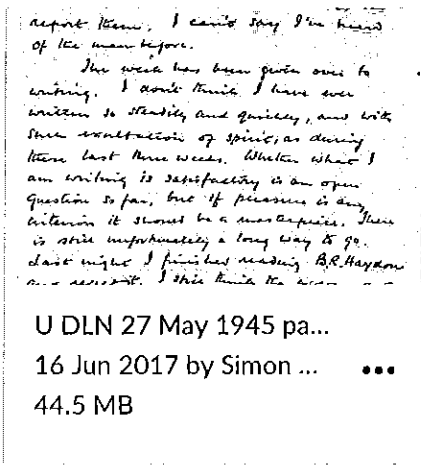 report them. I can't say I've heard
of the man before.
The week has been given over to
writing. I don't think I have ever
written so steadily and quickly, and with
such exultation of spirit, as during
these last three weeks. Whether what I
am writing is satisfactory is an open
question so far, but if pleasure is any
criterion it should be a masterpiece. There
is still unfortunately a long way to go.
Last night I finished reading B.R. Haydon
I still think the
U DLN 27 May 1945 pa...
16 Jun 2017 by Simon ...
44.5 MB